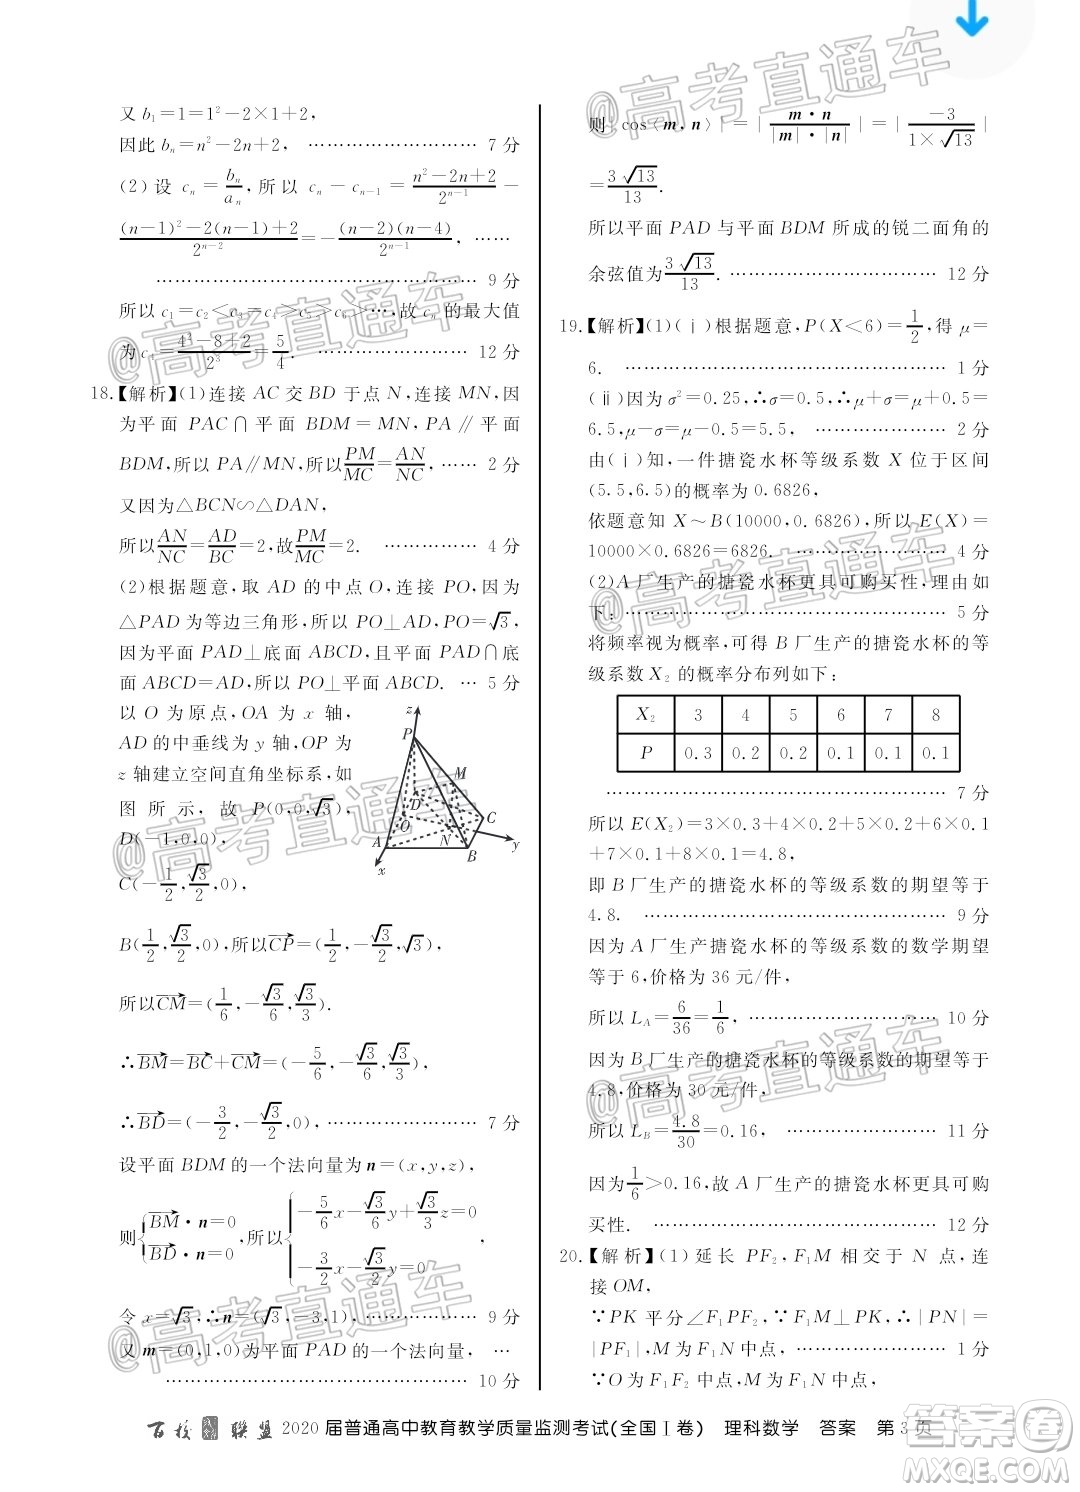 又 b₁=1=1²-2×1+2,
因此 bₙ=n²-2n+2, ………………………… 7 分
(2) 设 cₙ=bₙ/aₙ, 所以 cₙ-cₙ₋₁=(n²-2n+2)/2ⁿ⁻¹-
((n-1)²-2(n-1)+2)/2ⁿ⁻²=-(n-2)(n-4)/2ⁿ⁻¹, ……
………………………………………………… 9 分
所以 c₁=c₂<c₃=c₄>c₅>c₆>…,故 cₙ 的最大值
为 c₄=(4²-8+2)/2³=5/4. ……………………… 12 分
18.【解析】(1)连接 AC 交 BD 于点 N,连接 MN,因
为平面 PAC∩平面 BDM=MN,PA∥平面
BDM,所以 PA∥MN,所以PM/MC=AN/NC, …… 2 分
又因为△BCN∽△DAN,
所以AN/NC=AD/BC=2,故PM/MC=2. …………… 4 分
(2)根据题意,取 AD 的中点 O,连接 PO,因为
△PAD 为等边三角形,所以 PO⊥AD,PO=√3,
因为平面 PAD⊥底面 ABCD,平面 PAD∩底
面 ABCD=AD,所以 PO⊥平面 ABCD. … 5 分
以 O 为原点,OA 为 x 轴,
AD 的中垂线为 y 轴,OP 为
z 轴建立空间直角坐标系,如
图所示,故 P(0,0,√3),
D(-1,0,0),
C(-1/2,√3/2,0),
z
P
M
D
O
C
A
N
B
x
y
B(1/2,√3/2,0),所以CP→=(1/2,-√3/2,√3),
所以CM→=(1/6,-√3/6,√3/3).
∴BM→=BC→+CM→=(-5/6,-√3/6,√3/3),
∴BD→=(-3/2,-√3/2,0), …………………… 7 分
设平面 BDM 的一个法向量为 n=(x,y,z),
则{BM→·n=0 BD→·n=0,所以{-5/6x-√3/6y+√3/3z=0 -3/2x-√3/2y=0,
令 x=√3,∴n=(√3,-3,1), ……………… 9 分
又 m=(0,1,0)为平面 PAD 的一个法向量, …
………………………………………… 10 分
则 |cos⟨m,n⟩|=|m·n/|m|·|n||=|-3/(1×√13)|
=3√13/13.
所以平面 PAD 与平面 BDM 所成的锐二面角的
余弦值为3√13/13. …………………………… 12 分
19.【解析】(1)(ⅰ)根据题意,P(X<6)=1/2,得 μ=
6. ……………………………………………… 1 分
(ⅱ)因为 σ²=0.25,∴σ=0.5,∴μ+σ=μ+0.5=
6.5,μ-σ=μ-0.5=5.5, ………………… 2 分
由(ⅰ)知,一件搪瓷水杯等级系数 X 位于区间
(5.5,6.5)的概率为 0.6826,
依题意知 X~B(10000,0.6826),所以 E(X)=
10000×0.6826=6826. …………………… 4 分
(2)A 厂生产的搪瓷水杯更具可购买性,理由如
下: …………………………………………… 5 分
将频率视为概率,可得 B 厂生产的搪瓷水杯的等
级系数 X₂ 的概率分布列如下:
X₂ 3 4 5 6 7 8
P 0.3 0.2 0.2 0.1 0.1 0.1
………………………………………………… 7 分
所以 E(X₂)=3×0.3+4×0.2+5×0.2+6×0.1
+7×0.1+8×0.1=4.8,
即 B 厂生产的搪瓷水杯的等级系数的期望等于
4.8. …………………………………………… 9 分
因为 A 厂生产的搪瓷水杯的等级系数的数学期望
等于 6,价格为 36 元/件,
所以 L_A=6/36=1/6, ………………………… 10 分
因为 B 厂生产的搪瓷水杯的等级系数的期望等于
4.8,价格为 30 元/件,
所以 L_B=4.8/30=0.16, …………………… 11 分
因为1/6>0.16,故 A 厂生产的搪瓷水杯更具可购
买性. ………………………………………… 12 分
20.【解析】(1)延长 PF₂,F₁M 相交于 N 点,连
接 OM,
∵PK 平分∠F₁PF₂,∵F₁M⊥PK,∴|PN|=
|PF₁|,M 为 F₁N 中点, …………………… 1 分
∵O 为 F₁F₂ 中点,M 为 F₁N 中点,
百校联盟 2020 届普通高中教育教学质量监测考试(全国Ⅰ卷) 理科数学 答案 第 3 页
@高考直通车
@高考直通车
@高考直通车
@高考直通车
@高考直通车
@高考直通车
@高考直通车
@高考直通车
答案圈
MXQE.COM